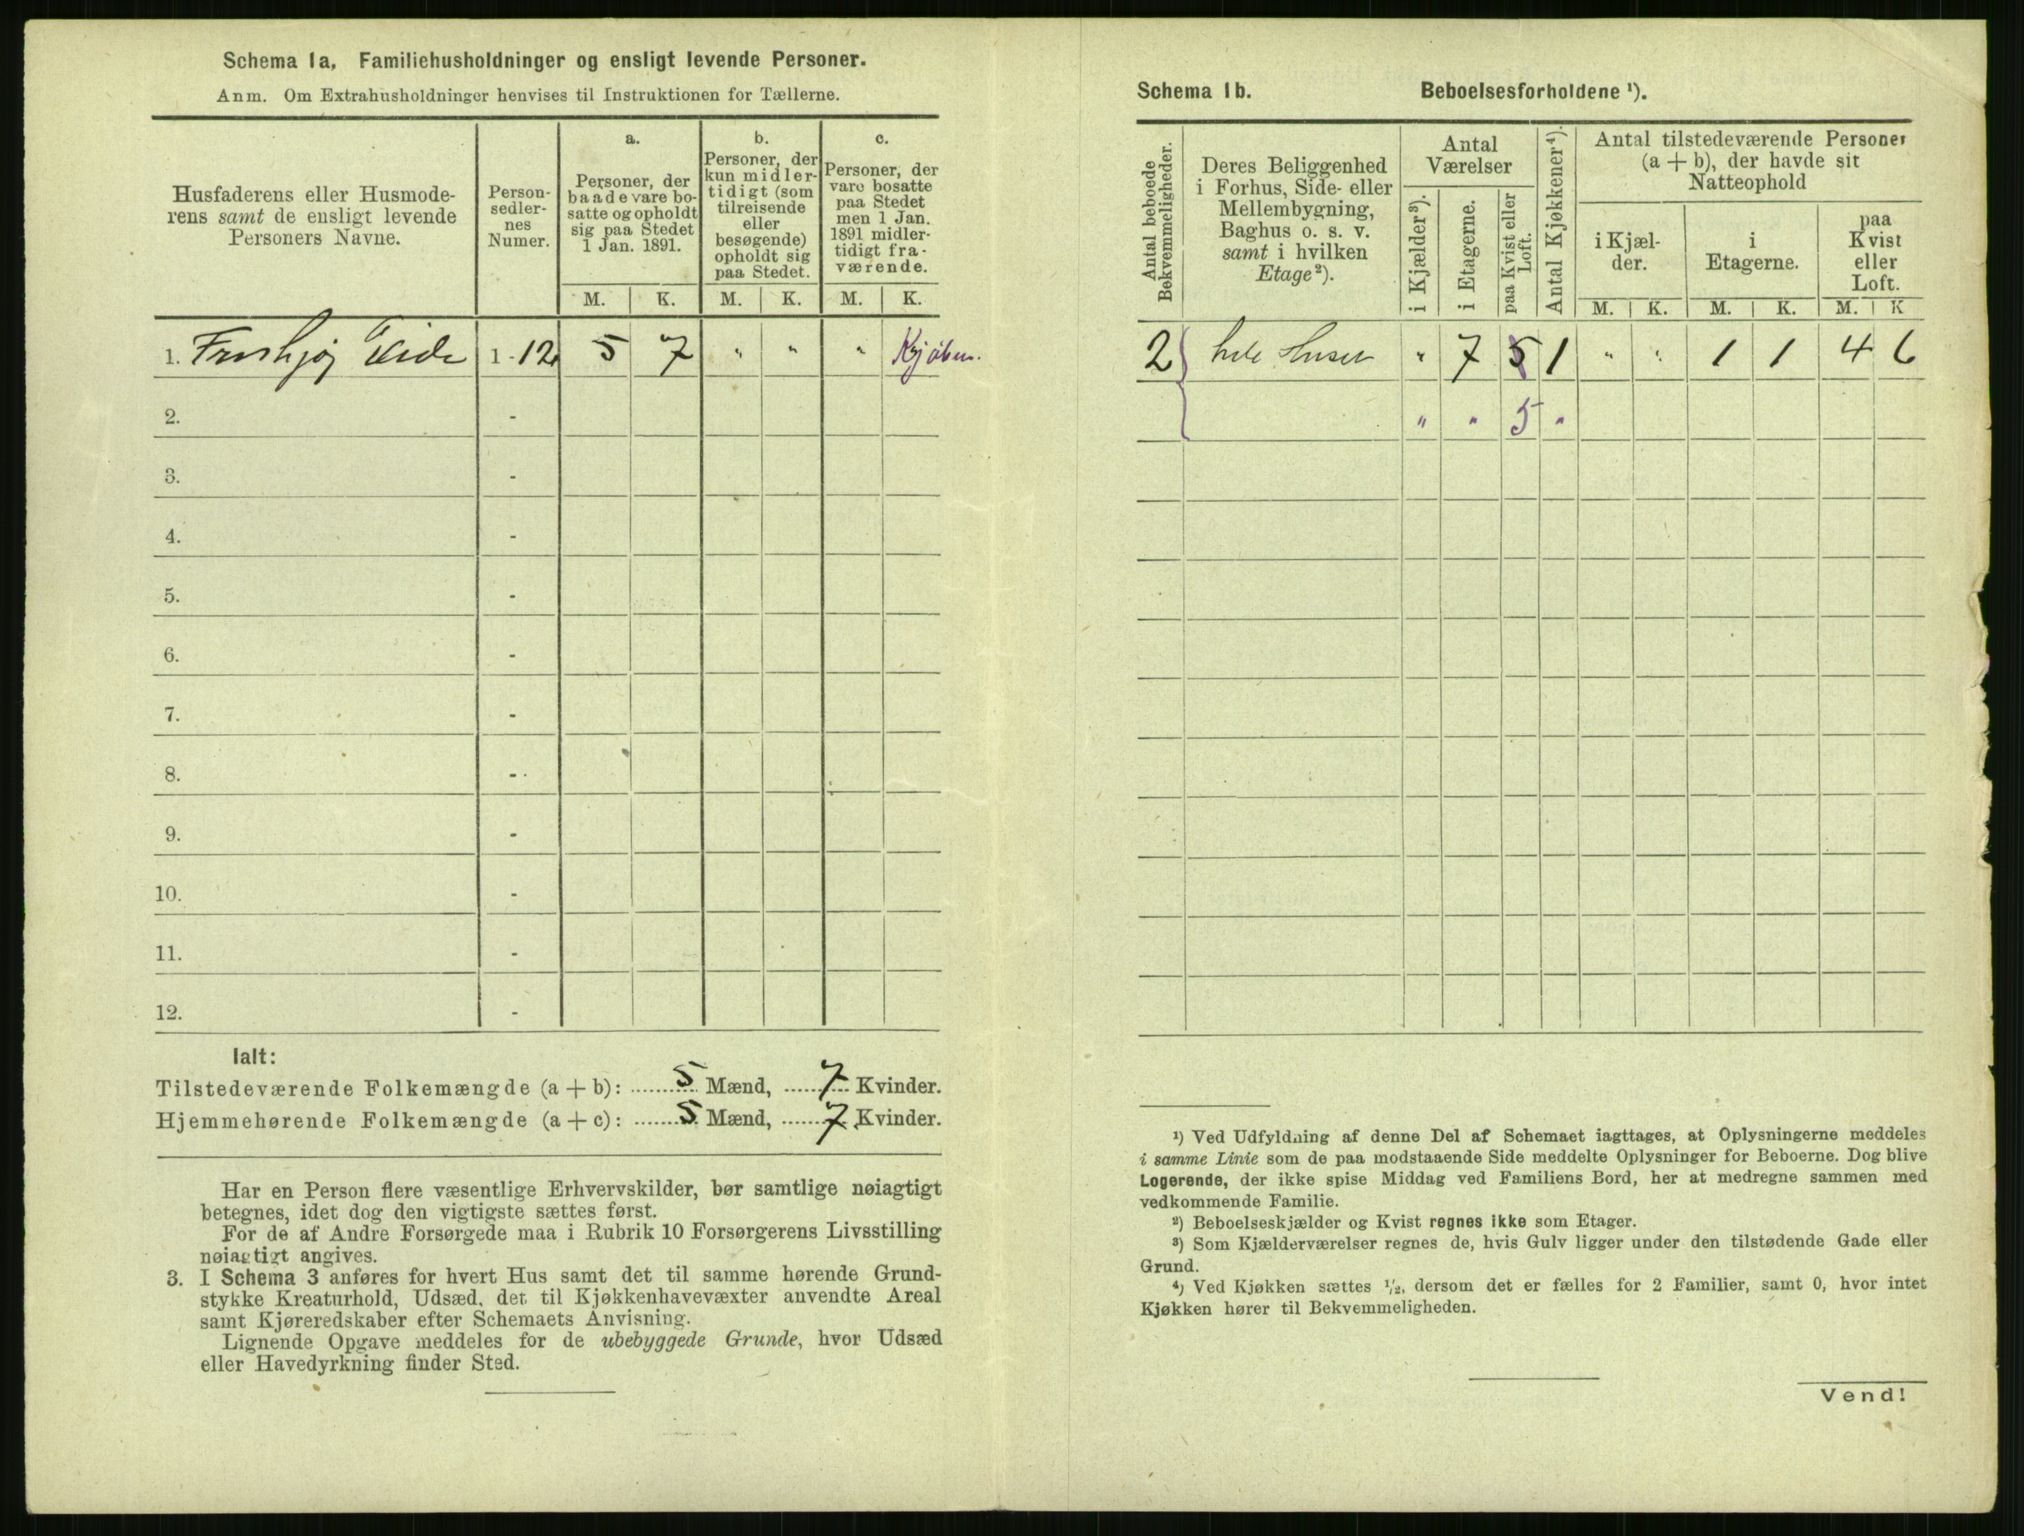 Schema 1a, Familiehusholdninger og ensligt levende Personer.
Anm. Om Extrahusholdninger henvises til Instruktionen for Tællerne.
Husfaderens eller Husmode-
rens samt de ensligt levende
Personers Navne.
Person-
sedler-
nes
Numer.
a.
Personer, der
baade vare bo-
satte og opholdt
sig paa Stedet
1 Jan. 1891.
b.
Personer, der
kun midler-
tidigt (som
tilreisende
eller
besøgende)
opholdt sig
paa Stedet.
c.
Personer, der
vare bosatte
paa Stedet
men 1 Jan.
1891 midler-
tidigt fra-
værende.
M. K. M. K. M. K.
1. Eide 1 - 12 5 7 " " "
2. -
3. -
4. -
5. -
6. -
7. -
8. -
9. -
10. -
11. -
12. -
Ialt:
Tilstedeværende Folkemængde (a + b): 5 Mænd, 7 Kvinder.
Hjemmehørende Folkemængde (a + c): 5 Mænd, 7 Kvinder.
Har en Person flere væsentlige Erhvervskilder, bør samtlige nøiagtigt
betegnes, idet dog den vigtigste sættes først.
For de af Andre Forsørgede maa i Rubrik 10 Forsørgerens Livsstilling
nøiagtigt angives.
3. I Schema 3 anføres for hvert Hus samt det til samme hørende Grund-
stykke Kreaturhold, Udsæd, det til Kjøkkenhavevæxter anvendte Areal
samt Kjøreredskaber efter Schemaets Anvisning.
Lignende Opgave meddeles for de ubebyggede Grunde, hvor Udsæd
eller Havedyrkning finder Sted.
Schema 1b. Beboelsesforholdene ¹).
Antal beboede
Bekvemmeligheder.
Deres Beliggenhed
i Forhus, Side- eller
Mellembygning,
Baghus o. s. v.
samt i hvilken
Etage²).
Antal
Værelser
i Kjælder³).
i Etagerne.
paa Kvist eller
Loft.
Antal Kjøkkener⁴).
Antal tilstedeværende Personer
(a + b), der havde sit
Natteophold
i Kjæl-
der.
i
Etagerne.
paa
Kvist
eller
Loft.
M. K. M. K. M. K
2 hele Huset " 7 5 1 " " 1 1 4 6
" " 5 "
¹) Ved Udfyldning af denne Del af Schemaet iagttages, at Oplysningerne meddeles
i samme Linie som de paa modstaaende Side meddelte Oplysninger for Beboerne. Dog blive
Logerende, der ikke spise Middag ved Familiens Bord, her at medregne sammen med
vedkommende Familie.
²) Beboelseskjælder og Kvist regnes ikke som Etager.
³) Som Kjælderværelser regnes de, hvis Gulv ligger under den tilstødende Gade eller
Grund.
⁴) Ved Kjøkken sættes ¹/₂, dersom det er fælles for 2 Familier, samt 0, hvor intet
Kjøkken hører til Bekvemmeligheden.
Vend!